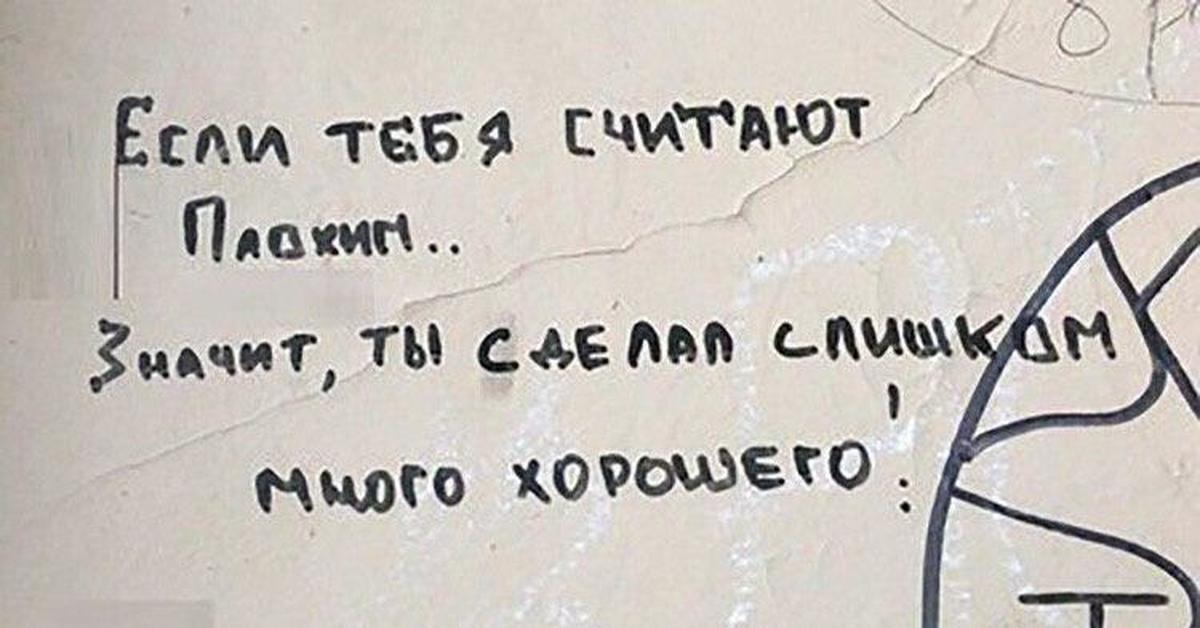 Если тебя считают
Плохим..
Значит, ты сделал слишком
много хорошего!